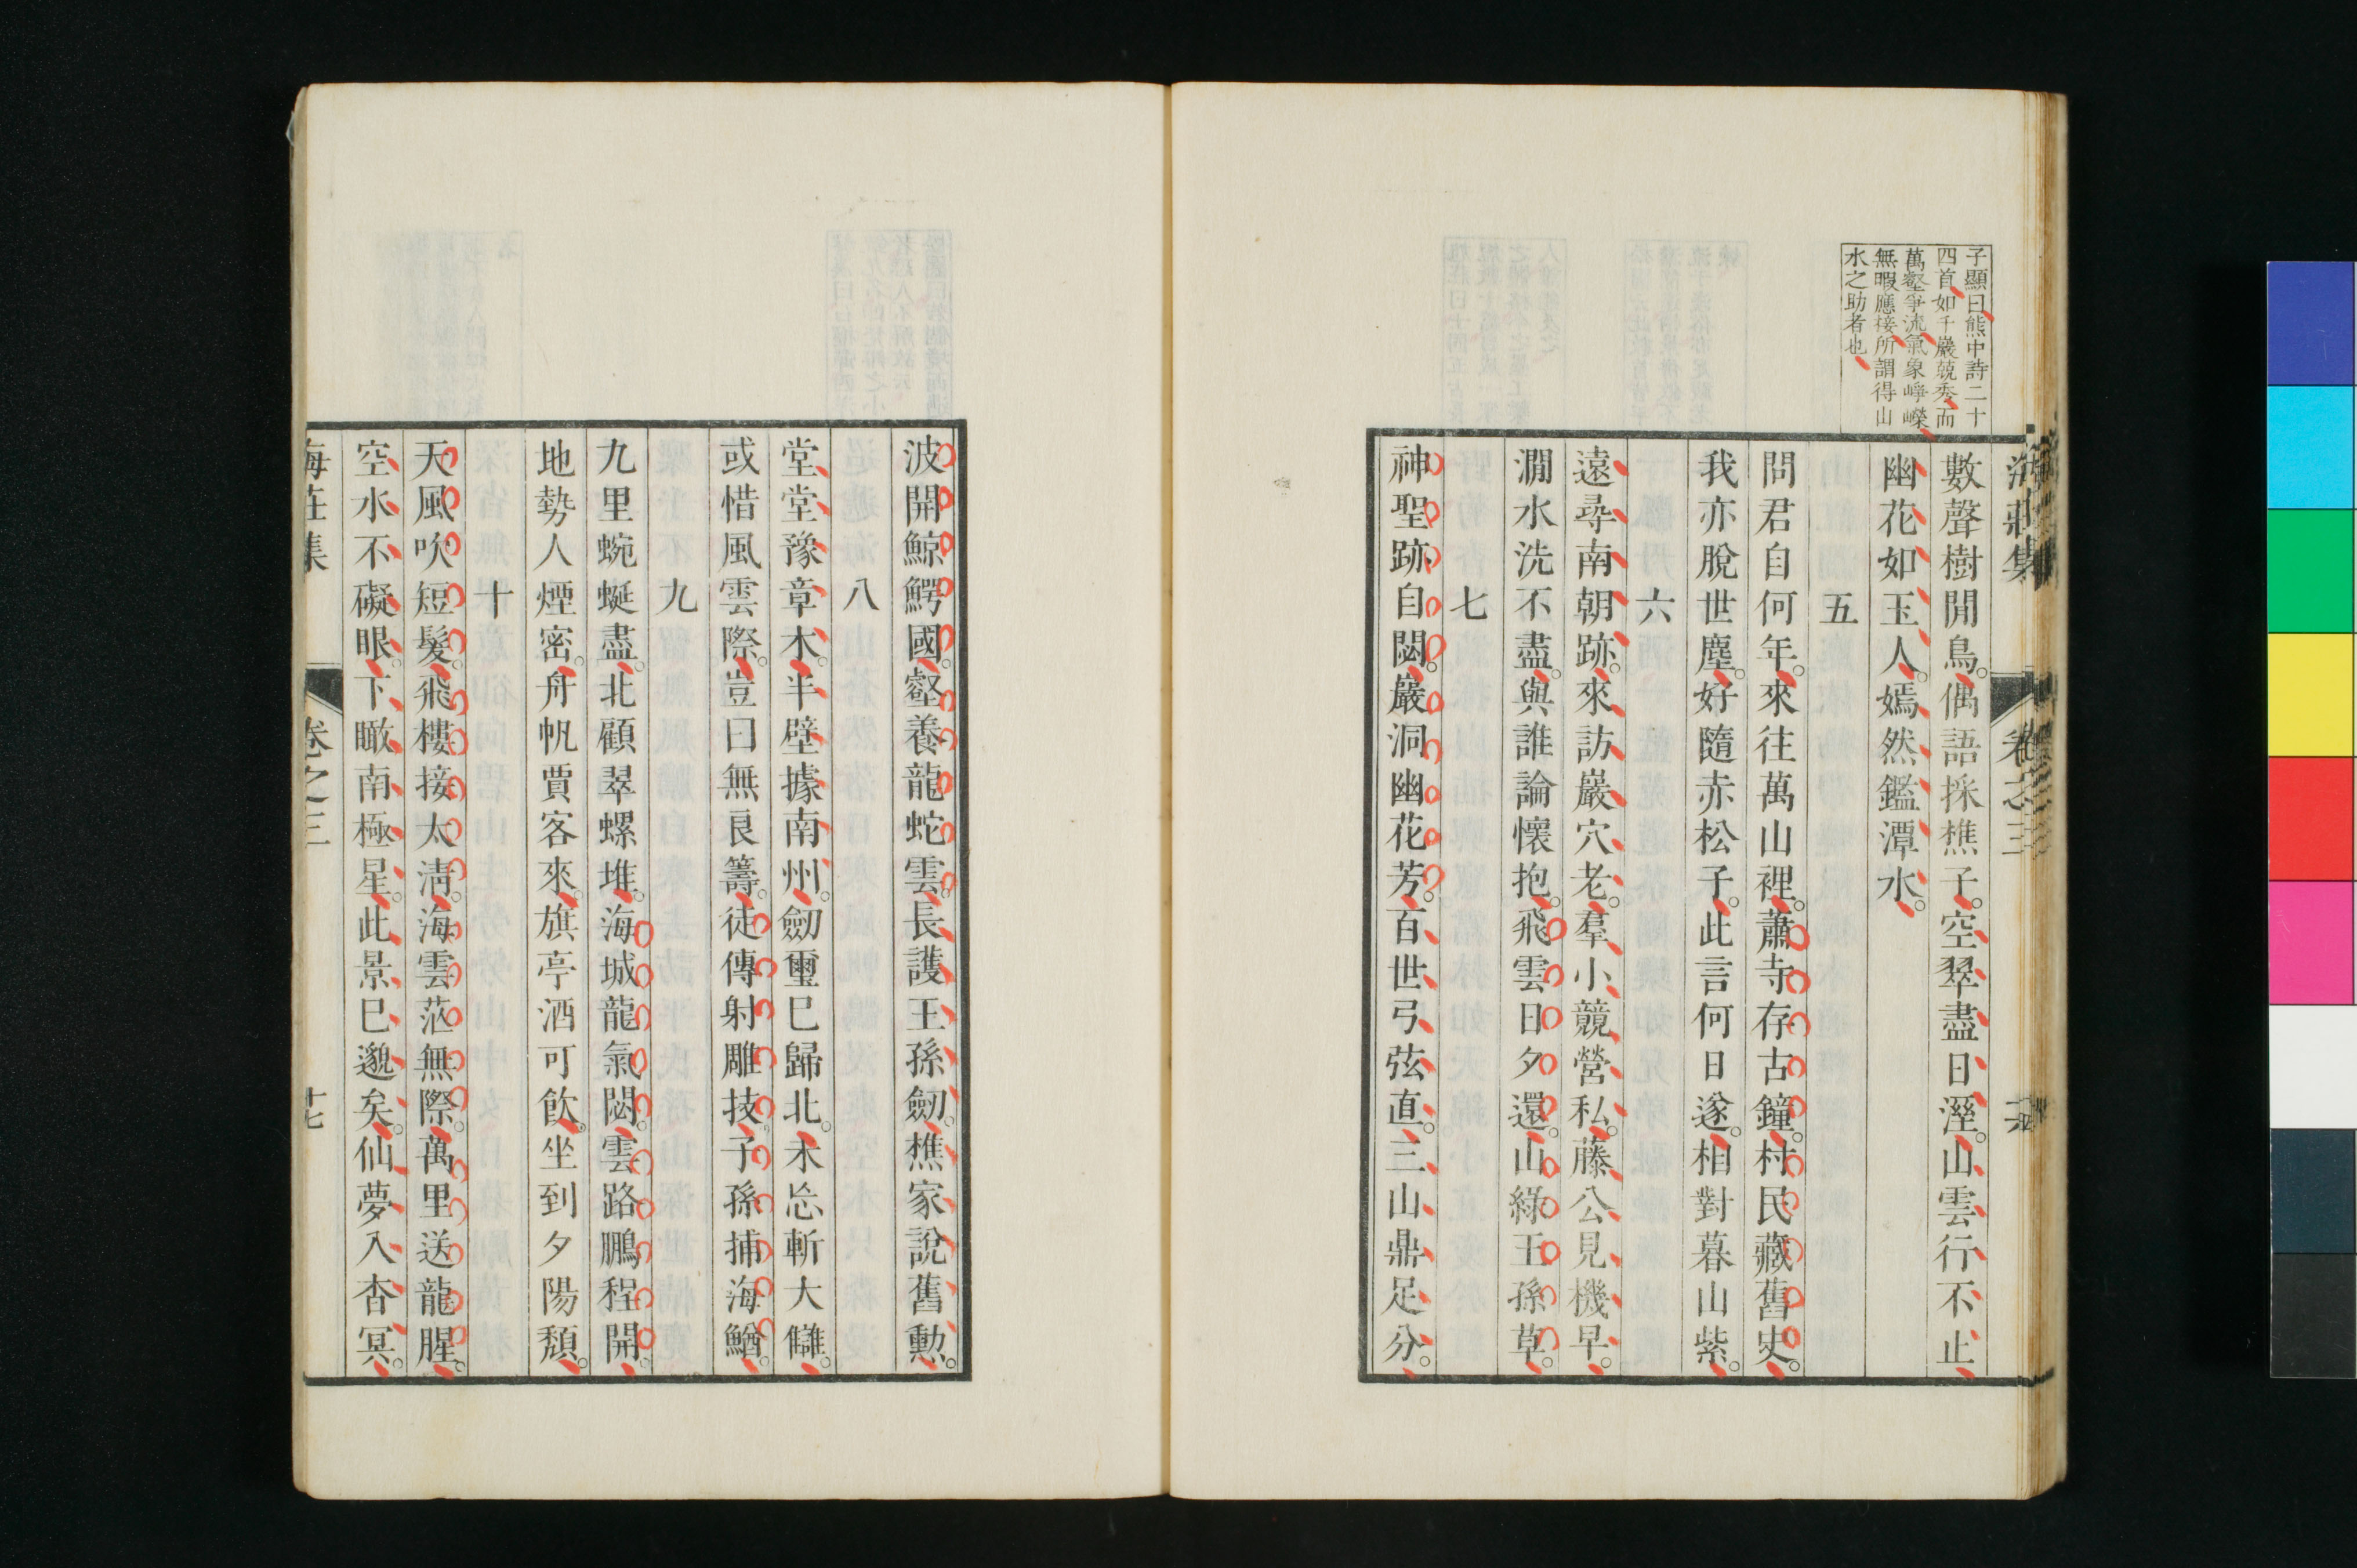 子顯曰熊中詩二十
四首如千巖競秀而
萬壑爭流氣象崢嶸
無暇應接所謂得山
水之助者也
海莊集 卷之三
數聲樹閒鳥。偶語採樵子。空翠盡日溼。山雲行不止
幽花如玉人。嫣然鑑潭水。
五
問君自何年。來往萬山裡。蕭寺存古鐘。村民藏舊史。
我亦脫世塵。好隨赤松子。此言何日遂。相對暮山紫。
六
遠尋南朝跡。來訪巖穴老。羣小競營私。藤公見機早。
澗水洗不盡。與誰論懷抱。飛雲日夕還。山綠王孫草。
七
神聖跡自閟。巖洞幽花芳。百世弓弦直。三山鼎足分。
波開鯨鰐國。壑養龍蛇雲。長護王孫劒。樵家說舊勳。
八
堂堂豫章木。半壁據南州。劒璽巳歸北。未忘斬大讎。
或惜風雲際。豈曰無良籌。徒傳射雕技。子孫捕海鰌。
九
九里蜿蜒盡。北顧翠螺堆。海城龍氣閟。雲路鵬程開。
地勢人煙密。舟帆賈客來。旗亭酒可飲。坐到夕陽頹。
十
天風吹短髮。飛樓接太淸。海雲茫無際。萬里送龍腥。
空水不礙眼。下瞰南極星。此景巳邈矣。仙夢入杳冥。
海莊集 卷之三 十七